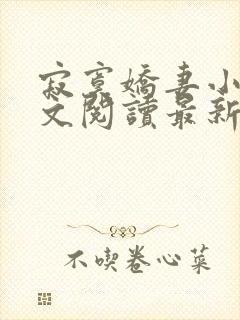 寂寞嬌妻小
文閱讀最新
不喫卷心菜